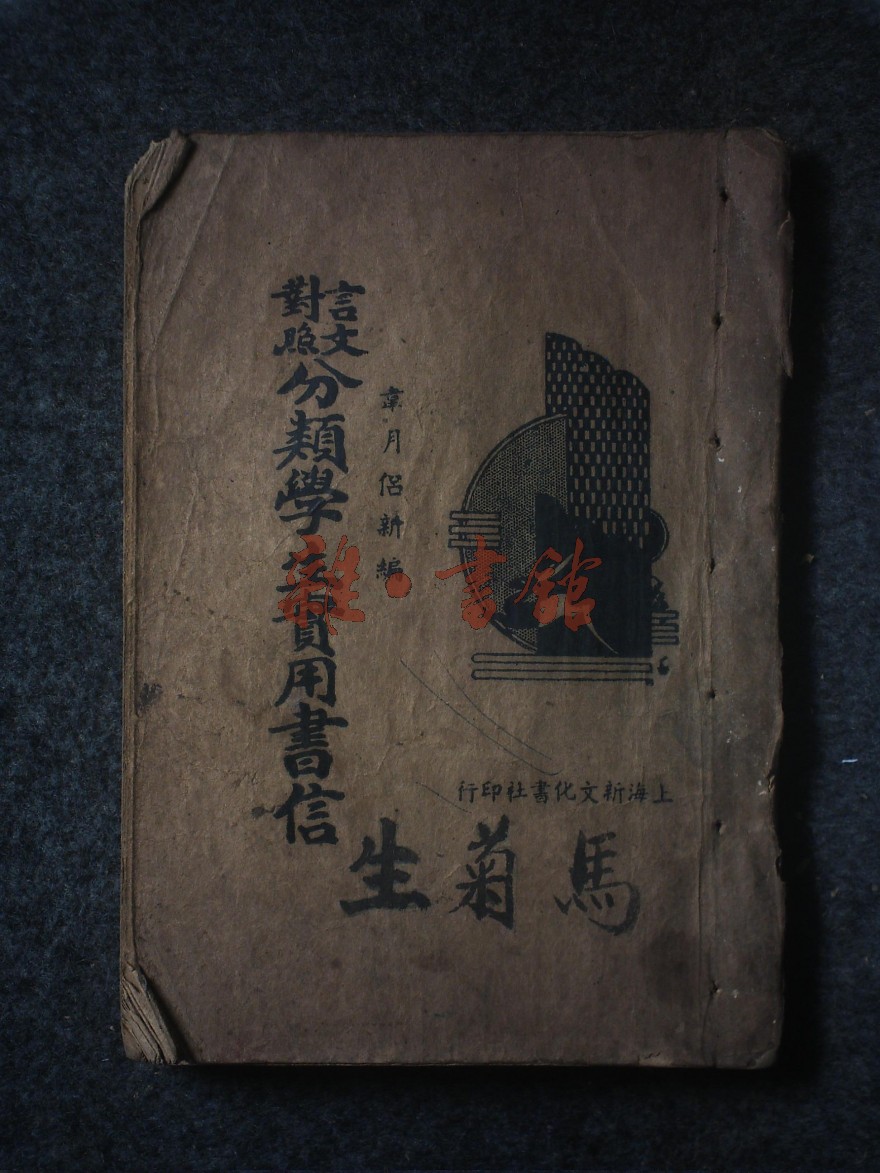 言文對照
分類學生實用書信
韋月侶新編
上海新文化書社印行
馬菊生
雜·書館